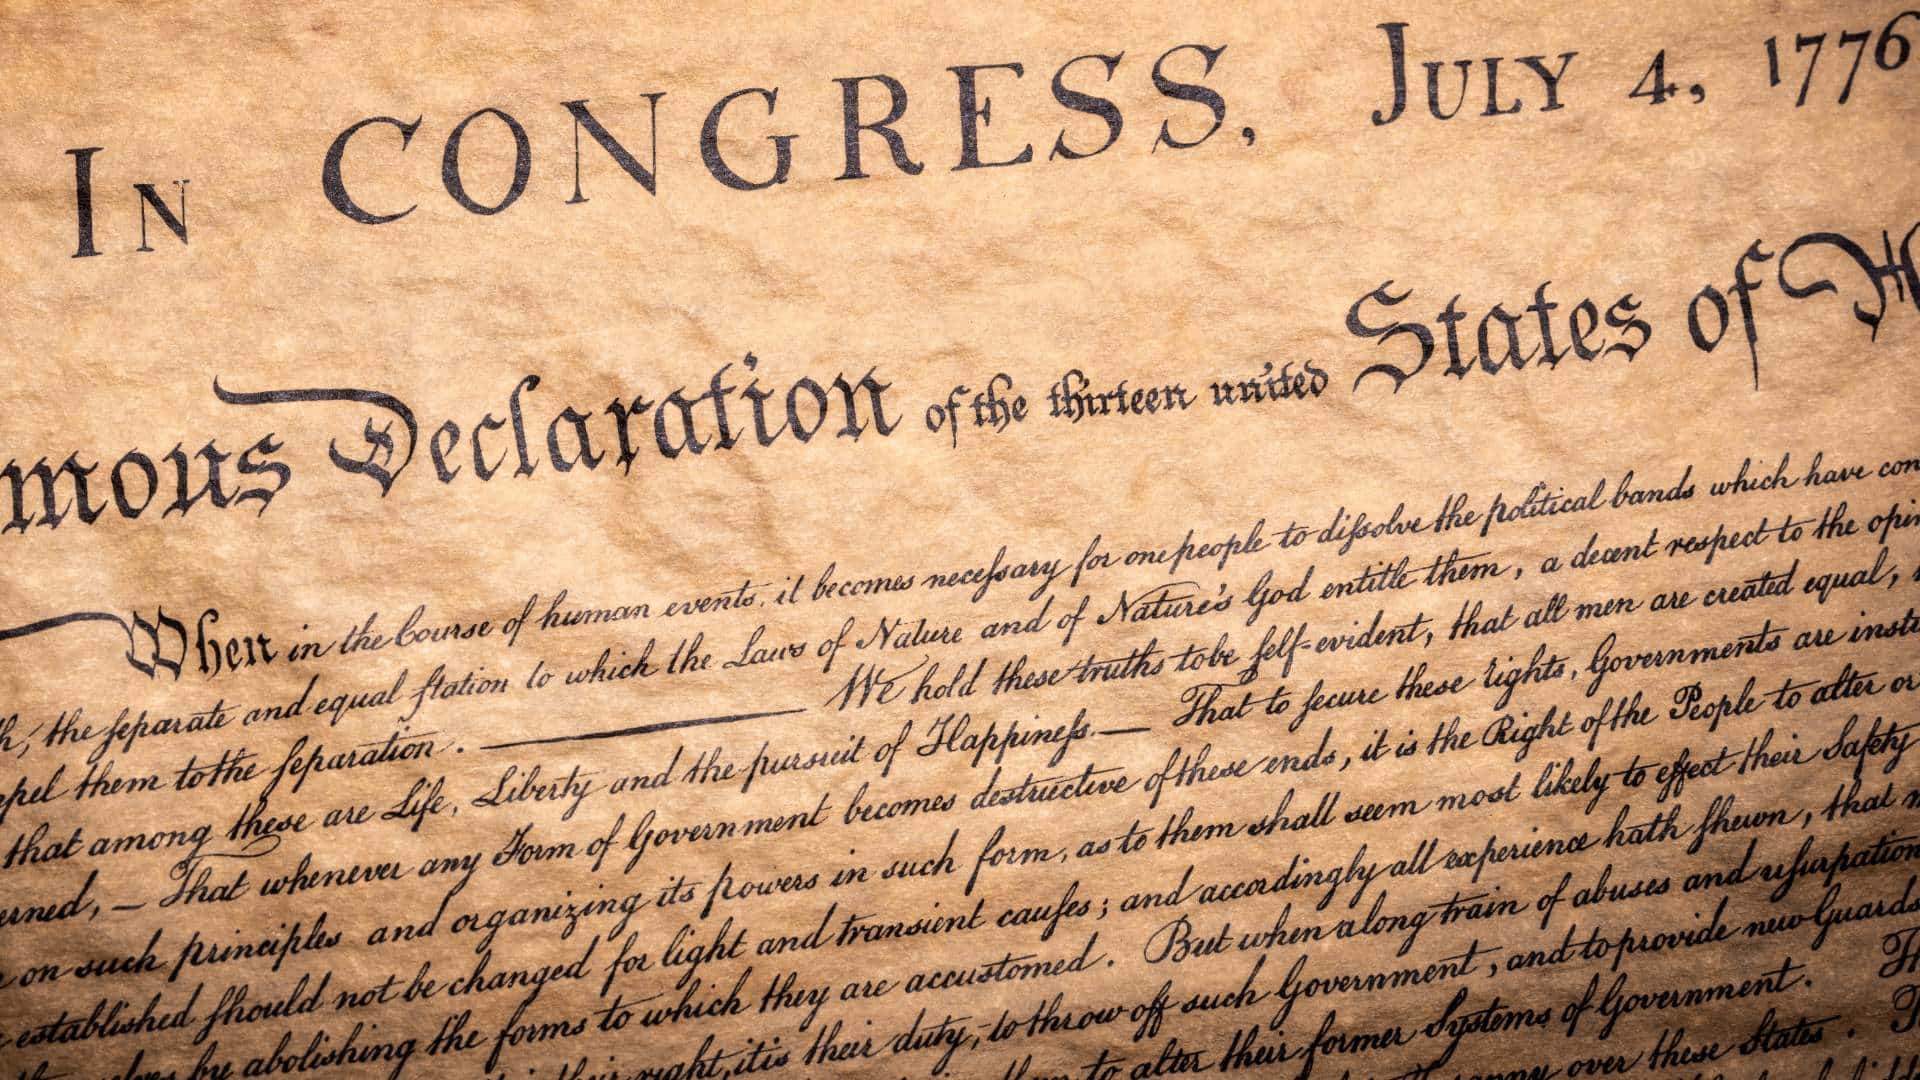 In CONGRESS, July 4, 1776
mous Declaration of the thirteen united States of
When in the Course of human events, it becomes necessary for one people to dissolve the political bands which have con
the separate and equal station to which the Laws of Nature and of Nature's God entitle them, a decent respect to the opin
pel them to the separation. We hold these truths to be self-evident, that all men are created equal,
that among these are Life, Liberty and the pursuit of Happiness.— That to secure these rights, Governments are instit
erned, — That whenever any Form of Government becomes destructive of these ends, it is the Right of the People to alter or
on such principles and organizing its powers in such form, as to them shall seem most likely to effect their Safety
established should not be changed for light and transient causes; and accordingly all experience hath shewn, that
by abolishing the forms to which they are accustomed. But when a long train of abuses and usurpation
their right, it is their duty, to throw off such Government, and to provide new Guards
to alter their former Systems of Government.
over these States.